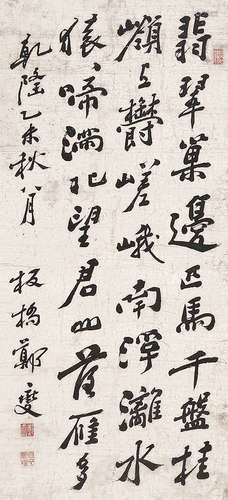 翡翠巢邊匹馬千盤桂
嶺上鬱嵯峨南浮灕水
猿啼滿北望君山落雁多
乾隆乙未秋八月
板橋鄭燮